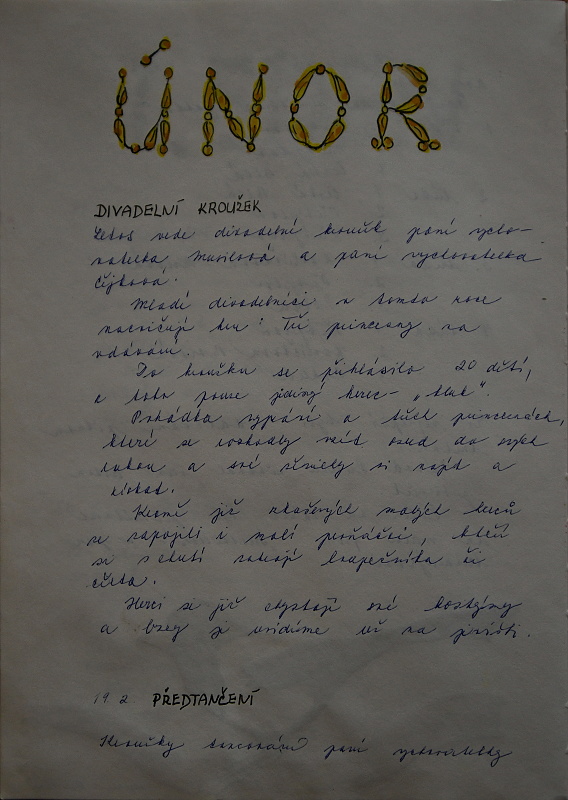 ÚNOR
DIVADELNÍ KROUŽEK
Letos vede divadelní kroužek paní vycho-
vatelka Musilová a paní vychovatelka
Čížková.
Mladí divadelníci v tomto roce
nacvičují hru: Tři princezny na
vdávání.
Do kroužku se přihlásilo 20 dětí,
z toho pouze jediný herec - „kluk".
Pohádka vypráví o třech princeznách,
které se rozhodly vzít osud do svých
rukou a své ženichy si najít a
získat.
Kromě již zkušených malých herců
se zapojili i malí prvňáčci, kteří
si s chutí zahrají loupežníka či
čerta.
Herci si již chystají své kostýmy
a brzy je uvidíme už na jevišti.
19. 2. PŘEDTANČENÍ
Kroužky tancování paní vychovatelky